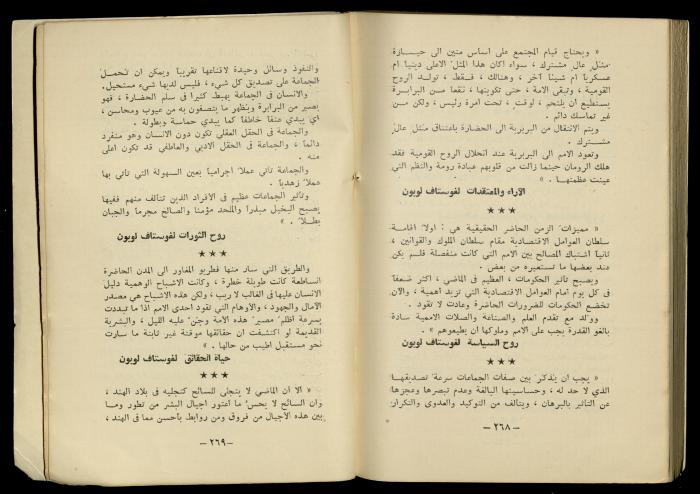 « ويحتاج قيام المجتمع على اساس متين الى حيازة
مثل عال مشترك ، سواء اكان هذا المثل الاعلى دينيا ام
عسكريا ام شيئا آخر ، وهنالك ، فقط ، تولد الروح
القومية ، وتبقى الامة ، حتى تكوينها ، نقعا من البرابرة
يستطيع ان يلتحم ، لوقت ، تحت امرة رئيس ، ولكن مسن
غير تماسك دائم .
ويتم الانتقال من البربرية الى الحضارة باعتناق مثل عال
مشترك .
وتعود الامم الى البربرية عند انحلال الروح القومية فقد
هلك الرومان حينما زالت من قلوبهم عبادة رومة والنظم التي
عينت عظمتها . »
الآراء والمعتقدات لغوستاف لوبون
★★★
« مميزات الزمن الحاضر الحقيقية هي : اولا اقامة
سلطان العوامل الاقتصادية مقام سلطان الملوك والقوانين ،
ثانيا اشتباك المصالح بين الامم التي كانت منفصلة فلم يكن
عند بعضها ما تستعيره من بعض .
ويصبح تأثير الحكومات ، العظيم في الماضي ، اكثر ضعفا
في كل يوم أمام العوامل الاقتصادية التي تزيد أهمية ، والآن
تخضع الحكومات للضرورات الحاضرة وعادت لا تقود .
وولد مع تقدم العلم والصناعة والصلات الاممية سادة
بالغو القدرة يجب على الامم وملوكها ان يطيعوهم » .
روح السياسة لغوستاف لوبون
★★★
« يجب ان يذكر بين صفات الجماعات سرعة تصديقها
الذي لا حد له ، وحساسيتها البالغة وعدم تبصرها وعجزها
عن التأثير بالبرهان ، ويتألف من التوكيد والعدوى والتكرار
— ٢٦٨ —
والنفوذ وسائل وحيدة لاقناعها تقريبا ويمكن ان تحمل
الجماعة على تصديق كل شيء ، فليس لديها شيء مستحيل.
والانسان في الجماعة يهبط كثيرا في سلم الحضارة ، فهو
يصير من البرابرة ويظهر ما يتصفون به من عيوب ومحاسن ،
أي يبدي عنفا خاطفا كما يبدي حماسة وبطولة .
والجماعة في الحقل العقلي تكون دون الانسان وهو منفرد
دائما ، والجماعة في الحقل الادبي والعاطفي قد تكون اعلى
منه .
والجماعة تأتي عملا اجراميا بعين السهولة التي تأتي بها
عملا زهديا .
وتأثير الجماعات عظيم في الافراد الذين تتألف منهم ففيها
يصبح البخيل مبذرا والملحد مؤمنا والصالح مجرما والجبان
بطلا . »
روح الثورات لغوستاف لوبون
★★★
والطريق التي سار منها فطريو المغاور الى المدن الحاضرة
الساطعة كانت طويلة خطرة ، وكانت الاشباح الوهمية دليل
الانسان عليها في الغالب لا ريب ، ولكن هذه الاشباح هي مصدر
الآمال والجهود ، والاوهام التي تقود احدى الامم اذا ما تبددت
بسرعة اظلم مصير هذه الامة وجن عليه الليل ، والبشرية
القديمة لو اكتشفت ان حقائقها موقتة غير ثابتة ما سارت
نحو مستقبل اطيب من حالها . »
حياة الحقائق لغوستاف لوبون
★★★
« الا ان الماضي لا يتجلى للسائح كتجليه في بلاد الهند ،
وان السائح لا يحس ما اعتور اجيال البشر من تطور وما
بين هذه الاجيال من فروق ومن روابط بأحسن مما في الهند ،
— ٢٦٩ —